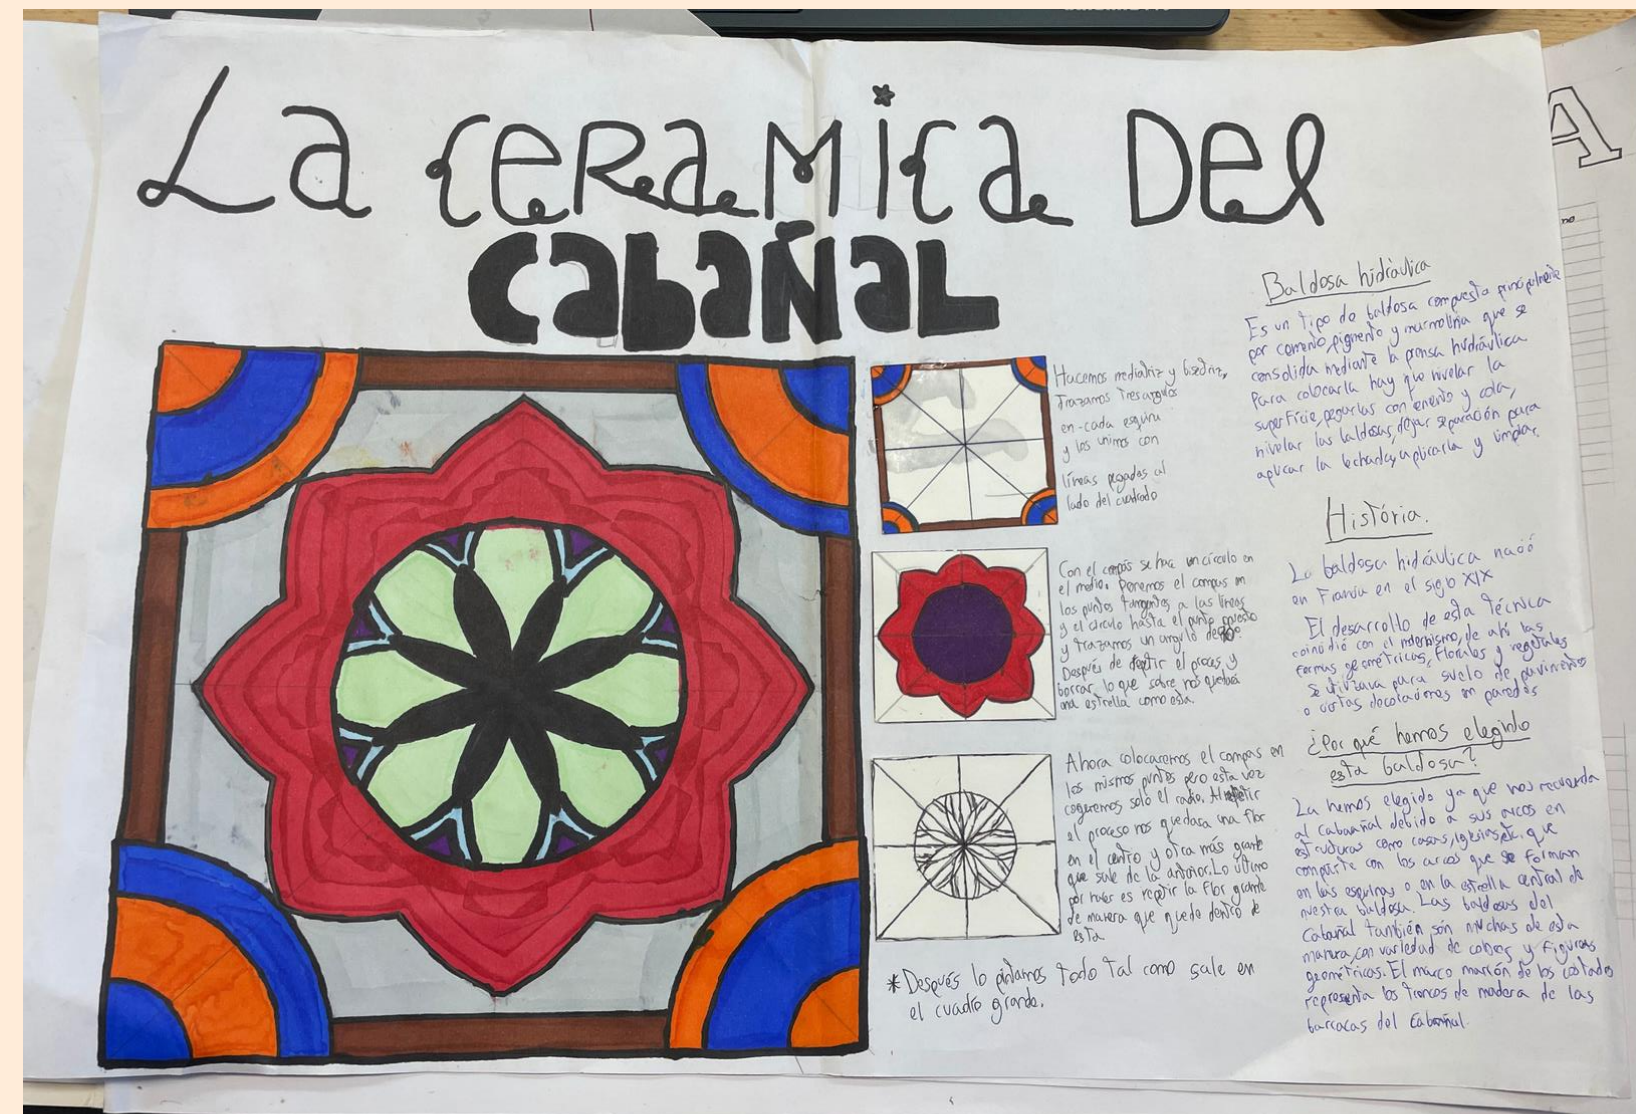 La ceramica Del
cabañal
Hacemos mediatriz y bisectriz,
Trazamos Tres angulos
en cada esquina
y los unimos con
líneas pegadas al
lado del cuadrado
Con el compás se hace un círculo en
el medio. Ponemos el compas en
los puntos tangentes a las líneas
y el circulo hasta el punto opuesto
y trazamos un angulo de 90º
Después de repetir el proces y
borrar lo que sobre nos quedará
una estrella como esta.
Ahora colocaremos el compas en
los mismos puntos pero esta vez
cogeremos solo el radio. Al repetir
el proceso nos quedara una flor
en el centro y otra más grande
que sale de la anterior. Lo último
por hacer es repetir la flor grande
de manera que quede dentro de
esta
*Después lo pintamos Todo Tal como sale en
el cuadro grande.
Baldosa hidràulica
Es un Tipo de baldosa compuesta principalmente
por cemento, pigmento y marmolina que se
consolida mediante la prensa hidráulica
Para colocarla hay que nivelar la
superficie, pegarlas con cemento y cola,
nivelar las baldosas, dejar separación para
aplicar la lechada, aplicarla y limpiar.
História.
La baldosa hidráulica nació
en Francia en el siglo XIX
El desarrollo de esta Técnica
coincidió con el modernismo, de ahí las
formas geométricas, florales y vegetales
Se utilizava para suelo de pavimentos
o ciertas decoraciones en paredes
¿Por qué hemos elegido
esta baldosa?
La hemos elegido ya que nos recuerda
al cabañal debido a sus arcos en
estructuras como casas, iglesias, etc. que
comparte con los arcos que se forman
en las esquinas o en la estrella central de
nuestra baldosa. Las baldosas del
Cabañal también són muchas de esta
manera, con variedad de colores y figuras
geométricas. El marco marrón de los costados
representa los Troncos de madera de las
barracas del Cabañal.
A